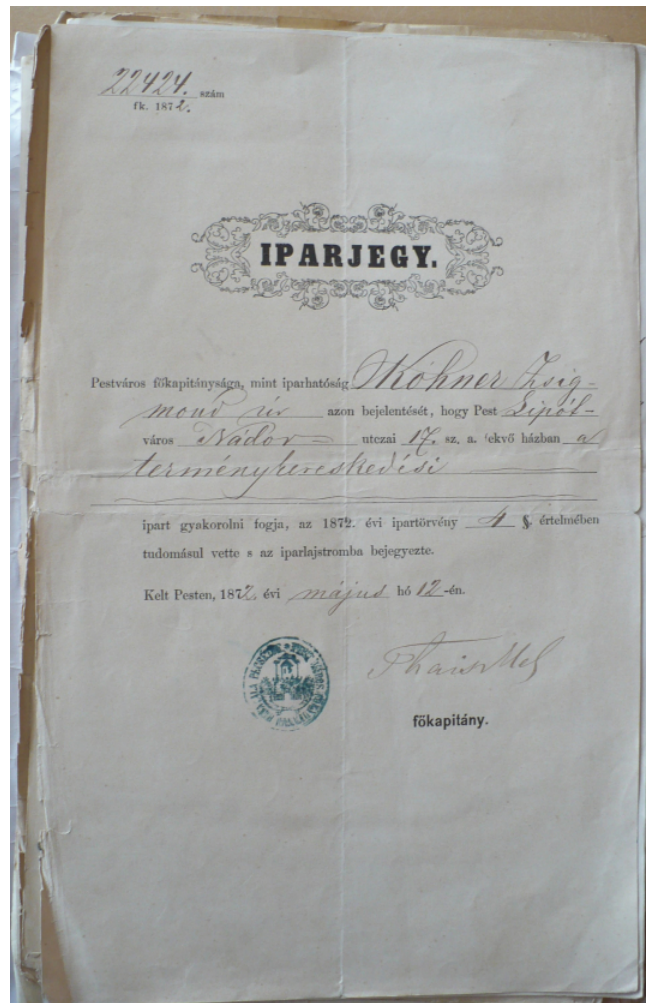 22424. szám
fk. 1872.
IPARJEGY.
Pestváros főkapitánysága, mint iparhatóság Kohner Zsig-
mond úr azon bejelentését, hogy Pest Lipót-
város Nádor utczai 17. sz. a. fekvő házban a
terménykereskedési
ipart gyakorolni fogja, az 1872. évi ipartörvény 4 § értelmében
tudomásul vette s az iparlajstromba bejegyezte.
Kelt Pesten, 1872. évi május hó 12-én.
főkapitány.